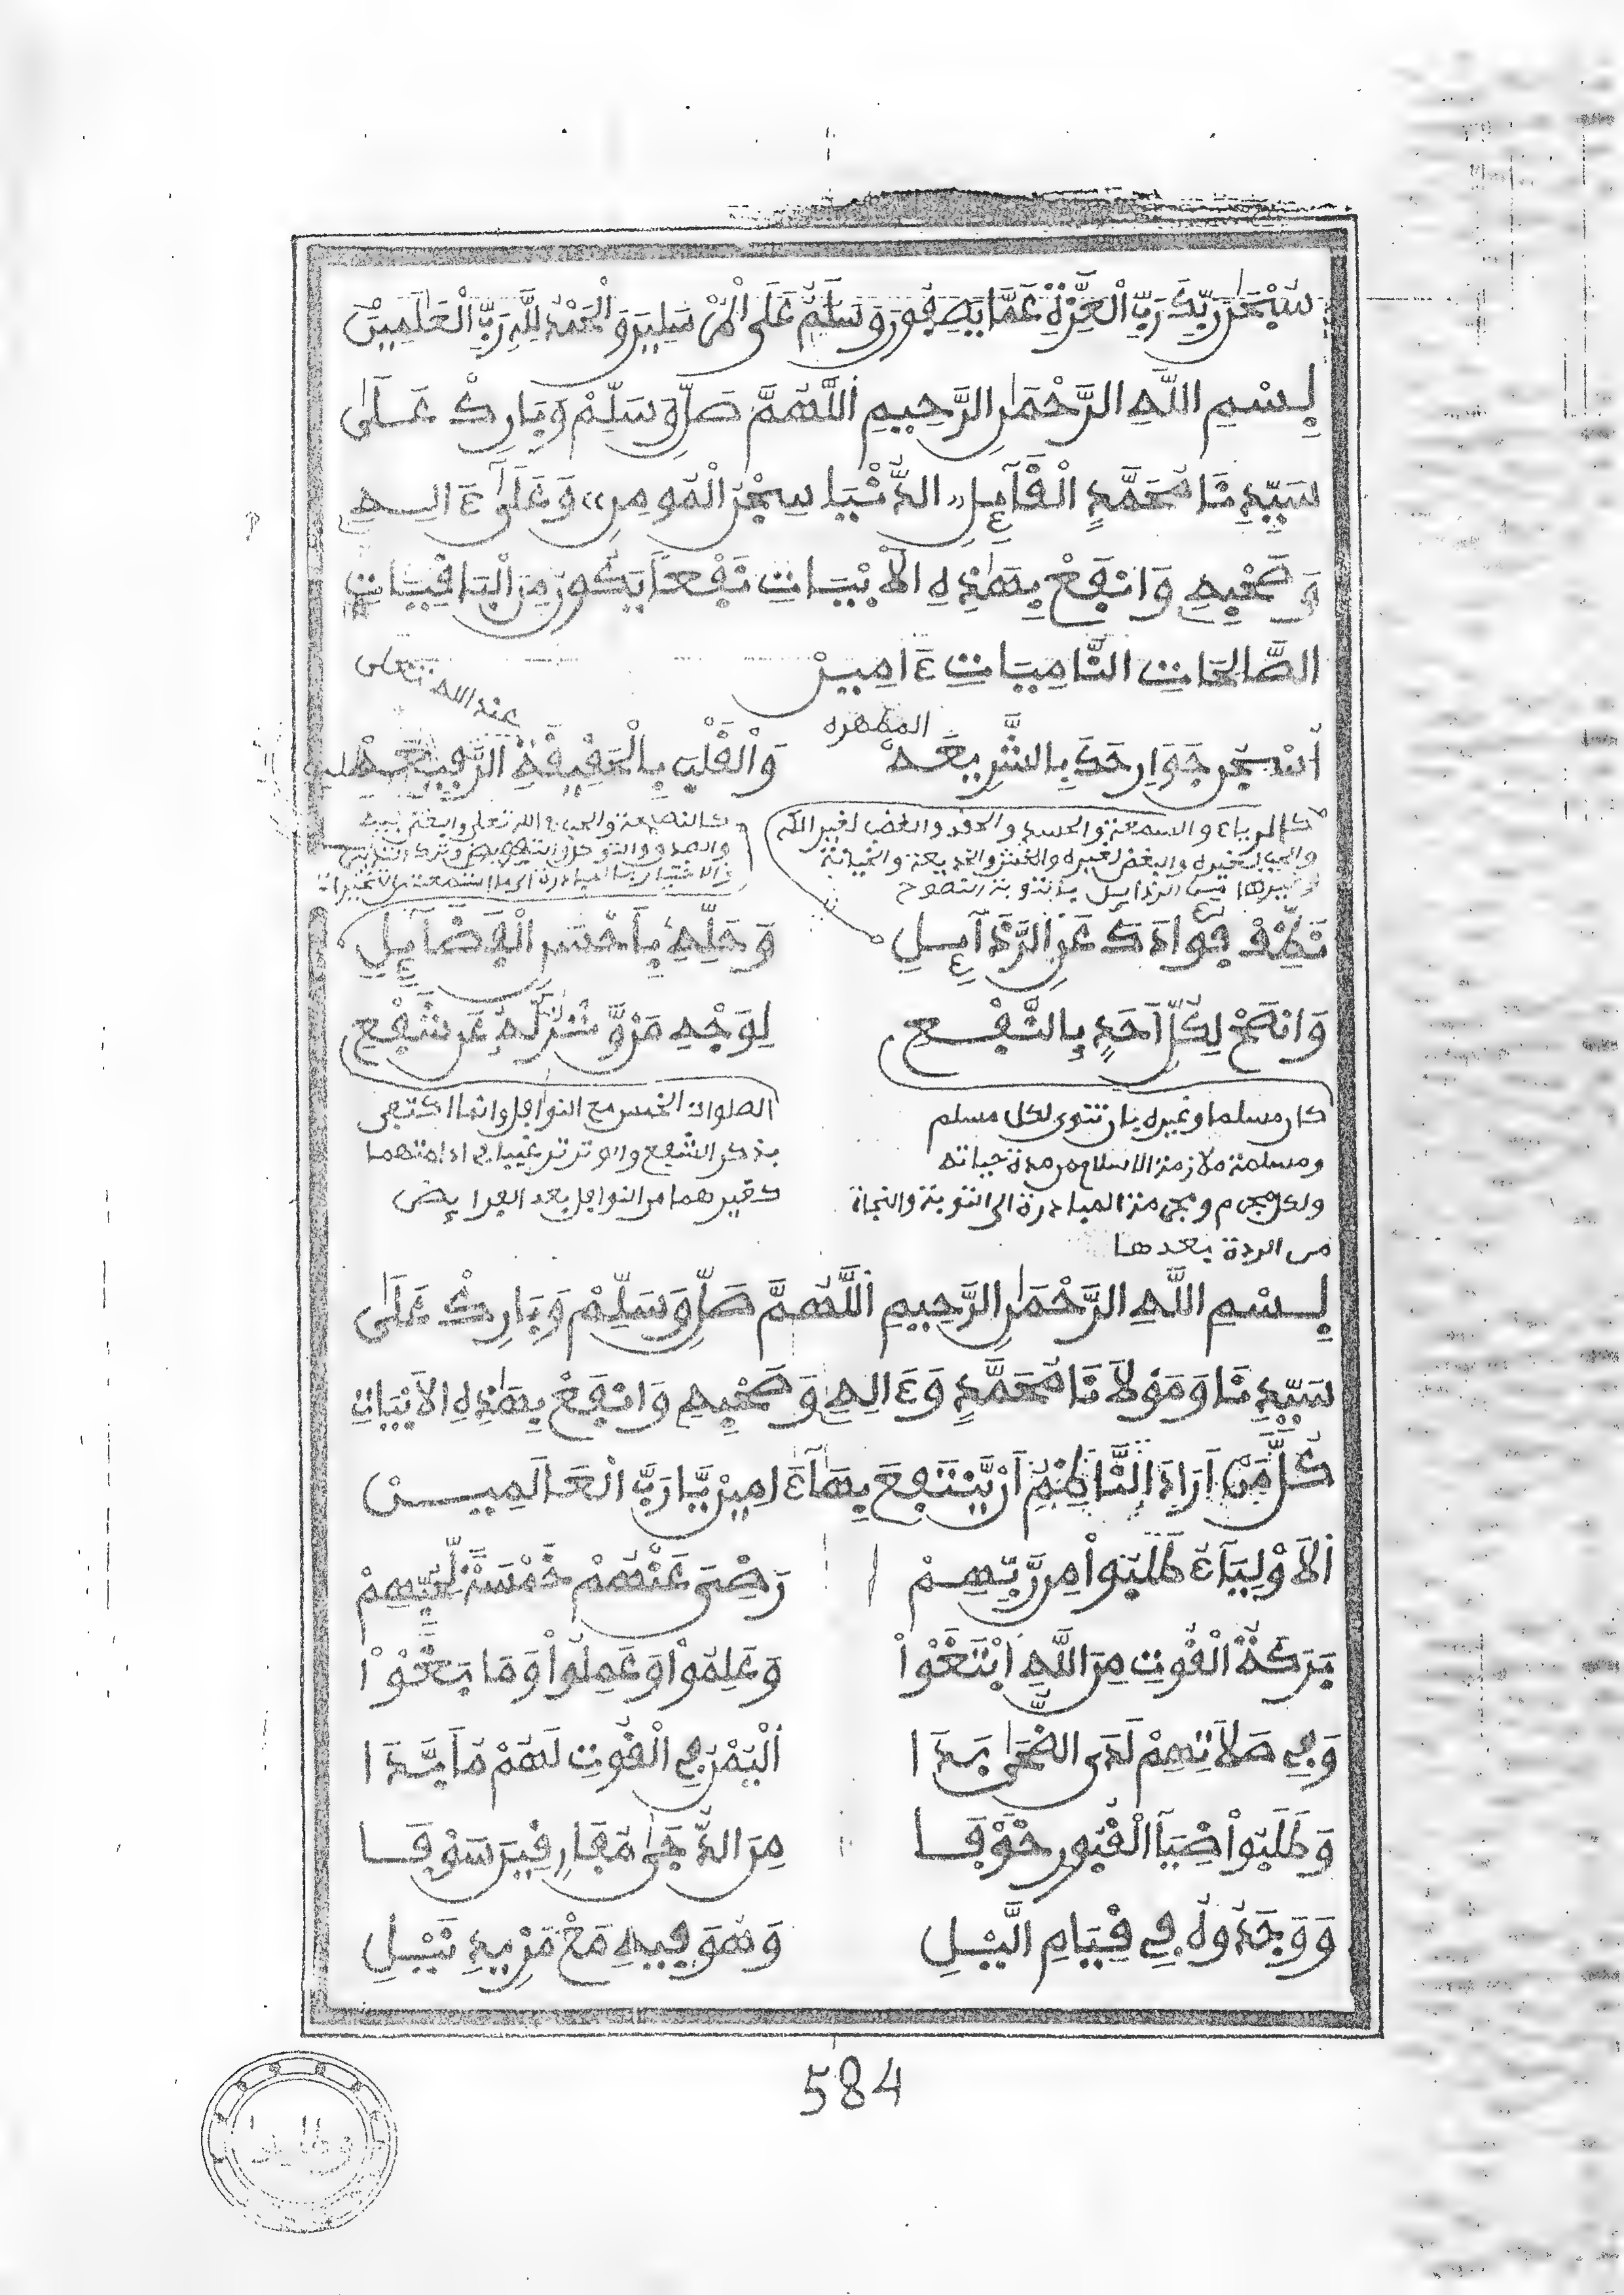 سُبْحَٰنَ رَبِّكَ رَبِّ الْعِزَّةِ عَمَّا يَصِفُونَ وَسَلَٰمٌ عَلَى الْمُرْسَلِينَ وَالْحَمْدُ لِلَّهِ رَبِّ الْعَٰلَمِينَ
بِسْمِ اللَّهِ الرَّحْمَٰنِ الرَّحِيمِ اللَّهُمَّ صَلِّ وَسَلِّمْ وَبَارِكْ عَلَىٰ
سَيِّدِنَا مُحَمَّدٍ الْقَآئِلِ «الدُّنْيَا سِجْنُ الْمُومِنِ» وَعَلَىٰ ءَالِهِ
وَصَحْبِهِ وَانْفَعْ بِهَٰذِهِ الْأَبْيَاتِ نَفْعًا يَكُونُ مِنَ الْبَاقِيَاتِ
الصَّالِحَاتِ النَّامِيَاتِ ءَامِينْ
عند الله تعلى
المطهره
أُسْجُنْ جَوَارِحَكَ بِالشَّرِيعَهْ وَالْقَلْبَ بِالْحَقِيقَةِ الرَّفِيعَهْ
كالرياء والسمعة والحسد والحقد والغضب لغير الله
والحب لغيره والبغض لغيره والغش والخديعة والخيانة
وغيرها من الرذايل بالتوبة النصوح
كالنصيحة والحب في الله تعلى والبغض فيه
نَظِّفْ فُؤَادَكَ عَنِ الرَّذَآئِلِ وَحَلِّهِ بِأَحْسَنِ الْفَضَآئِلِ
وَانْصَحْ لِكُلِّ أَحَدٍ بِالنَّفْعِ لِوَجْهِ مَنْ وَّتْرٌ لَّهُ عَن شَفْعِ
كان مسلما وغيره بان تنوى لكل مسلم
ومسلمة ملازمة الاسلام من مدة حياته
ولكل مجرم ومجرمة المبادرة الى التوبة والنجاة
من الردة بعدها
الصلوات الخمس مع النوافل وانما اكتفى
بذكر الشفع والوتر ترغيبا في ادامتهما
كغيرهما من النوافل بعد الفرايض
بِسْمِ اللَّهِ الرَّحْمَٰنِ الرَّحِيمِ اللَّهُمَّ صَلِّ وَسَلِّمْ وَبَارِكْ عَلَىٰ
سَيِّدِنَا وَمَوْلَانَا مُحَمَّدٍ وَءَالِهِ وَصَحْبِهِ وَانْفَعْ بِهَٰذِهِ الْأَبْيَاتِ
كُلَّ مَنْ أَرَادَ النَّاظِمُ أَنْ يَّنْتَفِعَ بِهَآ ءَامِينْ يَّا رَبَّ الْعَالَمِينْ
اَلْأَوْلِيَآءُ طَلَبُواْ مِن رَّبِّهِمْ رَضِيَ عَنْهُمْ خَمْسَةً لِّحُبِّهِمْ
بَرَكَةُ الْقُوتِ مِنَ اللَّهِ ابْتَغَوْاْ وَعَلِمُواْ وَعَمِلُواْ وَمَا بَغَوْاْ
وَفِي صَلَاتِهِمْ لَدَى الضُّحَىٰ بَدَا اَلْيُمْنُ فِي الْقُوتِ لَهُمْ مُّأَيَّدَا
وَطَلَبُواْ ضِيَا الْقُبُورِ خَوْفَا مِنَ الدُّجَىٰ مُفَارِقِينَ سَوْفَا
وَوَجَدُوهُ فِي قِيَامِ الَّيْلِ وَهُوَ فِيهِ مَعْ مَزِيدِ نَيْلِ
584